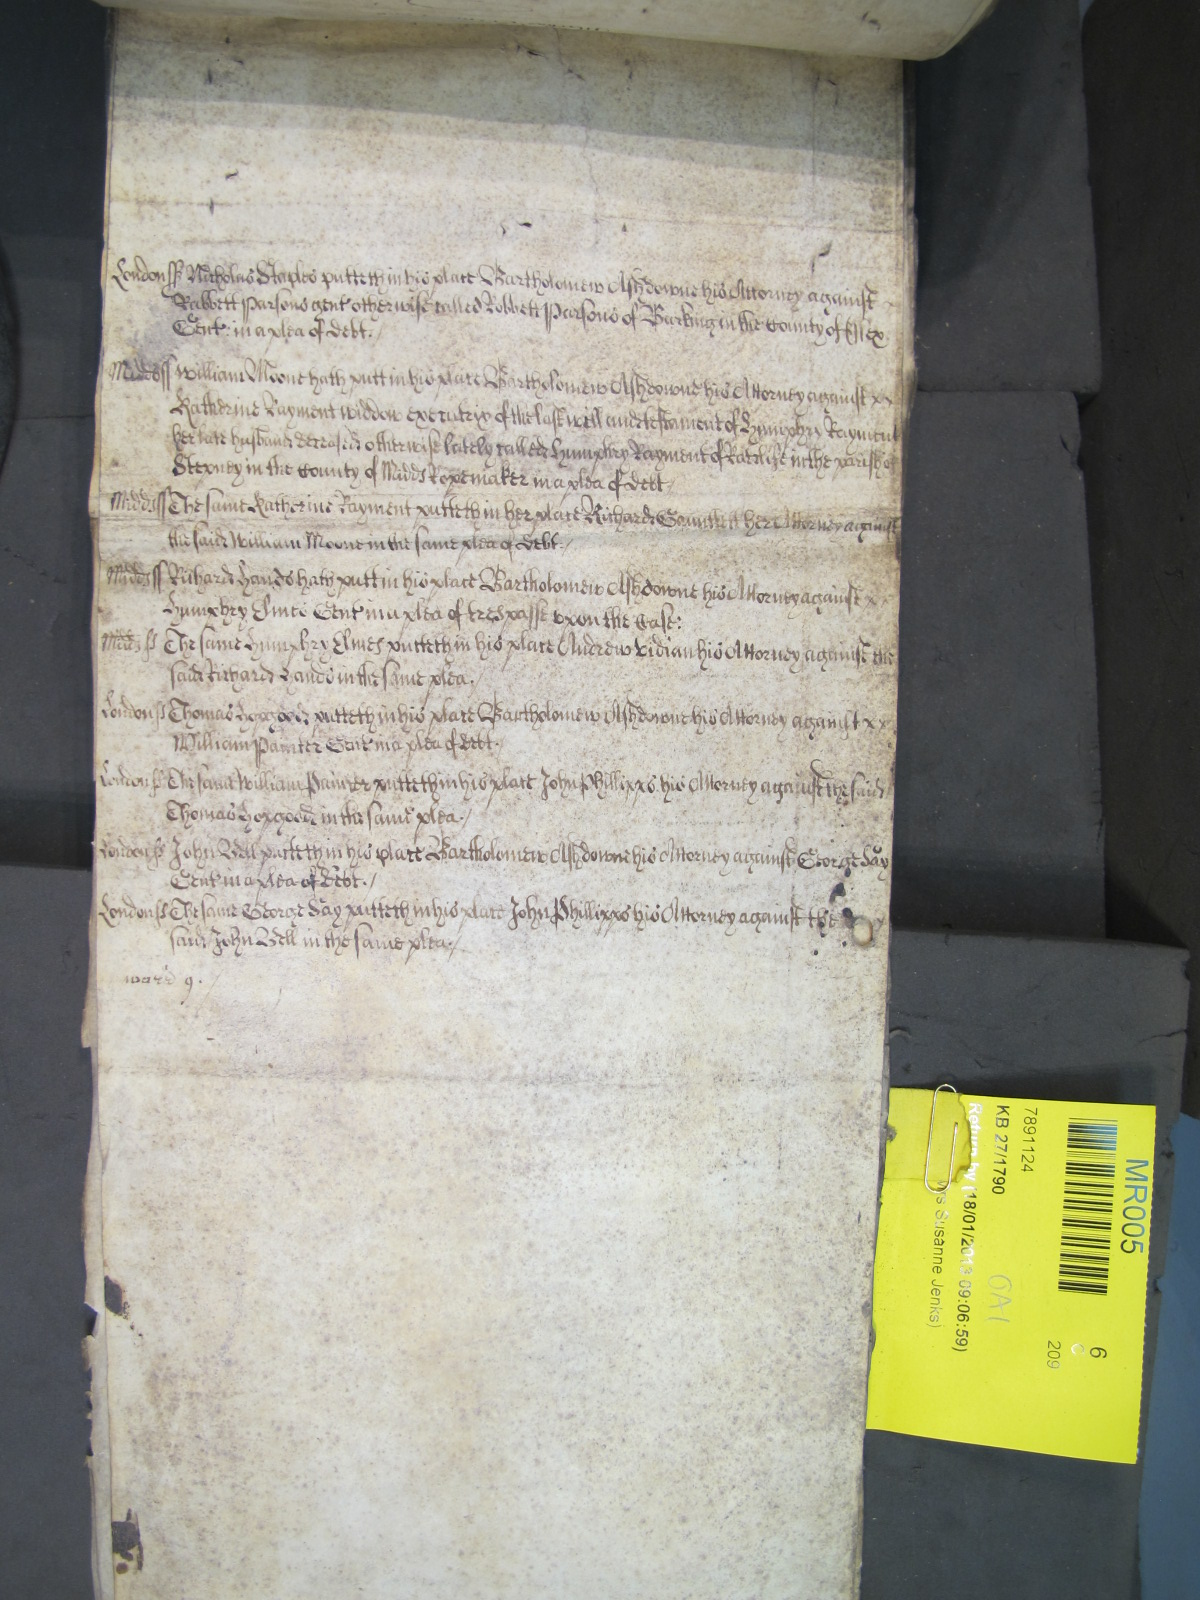 London ss Nicholas Staples putteth in his place Bartholomew Ashdowne his Attorney against
Robbett Parsons gent otherwise called Robbett Parsons of Barking in the County of Essex
Gent: in a plea of debt./
Midds ss William Moone hath putt in his place Bartholomew Ashdowne his Attorney against xx
Katherine Rayment widdow executrix of the last will and testament of Humphry Rayment
her late husband deceased otherwise lately called Humphry Rayment of Ratcliffe in the parish of
Stepney in the County of Midds Ropemaker in a plea of debt/
Midds ss The same Katherine Rayment putteth in her place Richard her Attorney against
the said William Moone in the same plea of debt./
Midds ss Richard Hands hath putt in his place Bartholomew Ashdowne his Attorney against xx
Humphry Elmes Gent in a plea of trespasse upon the Case:
Midds ss The same Humphry Elmes putteth in his place Andrew Vidian his Attorney against the
said Richard Hands in the same plea./
London ss Thomas Hopgood putteth in his place Bartholomew Ashdowne his Attorney against xx
William Painter Gent in a plea of debt./
London ss The same William Painter putteth in his place John Phillipps his Attorney against the said
Thomas Hopgood in the same plea./
London ss John Bell putteth in his place Bartholomew Ashdowne his Attorney against George Day
Gent in a plea of debt./
London ss The same George Day putteth in his place John Phillipps his Attorney against the
said John Bell in the same plea./
ward 9./
MR005
6
C
209
7891124
KB 27/1790
Return by (18/01/2013 09:06:59)
Mrs Susanne Jenks)